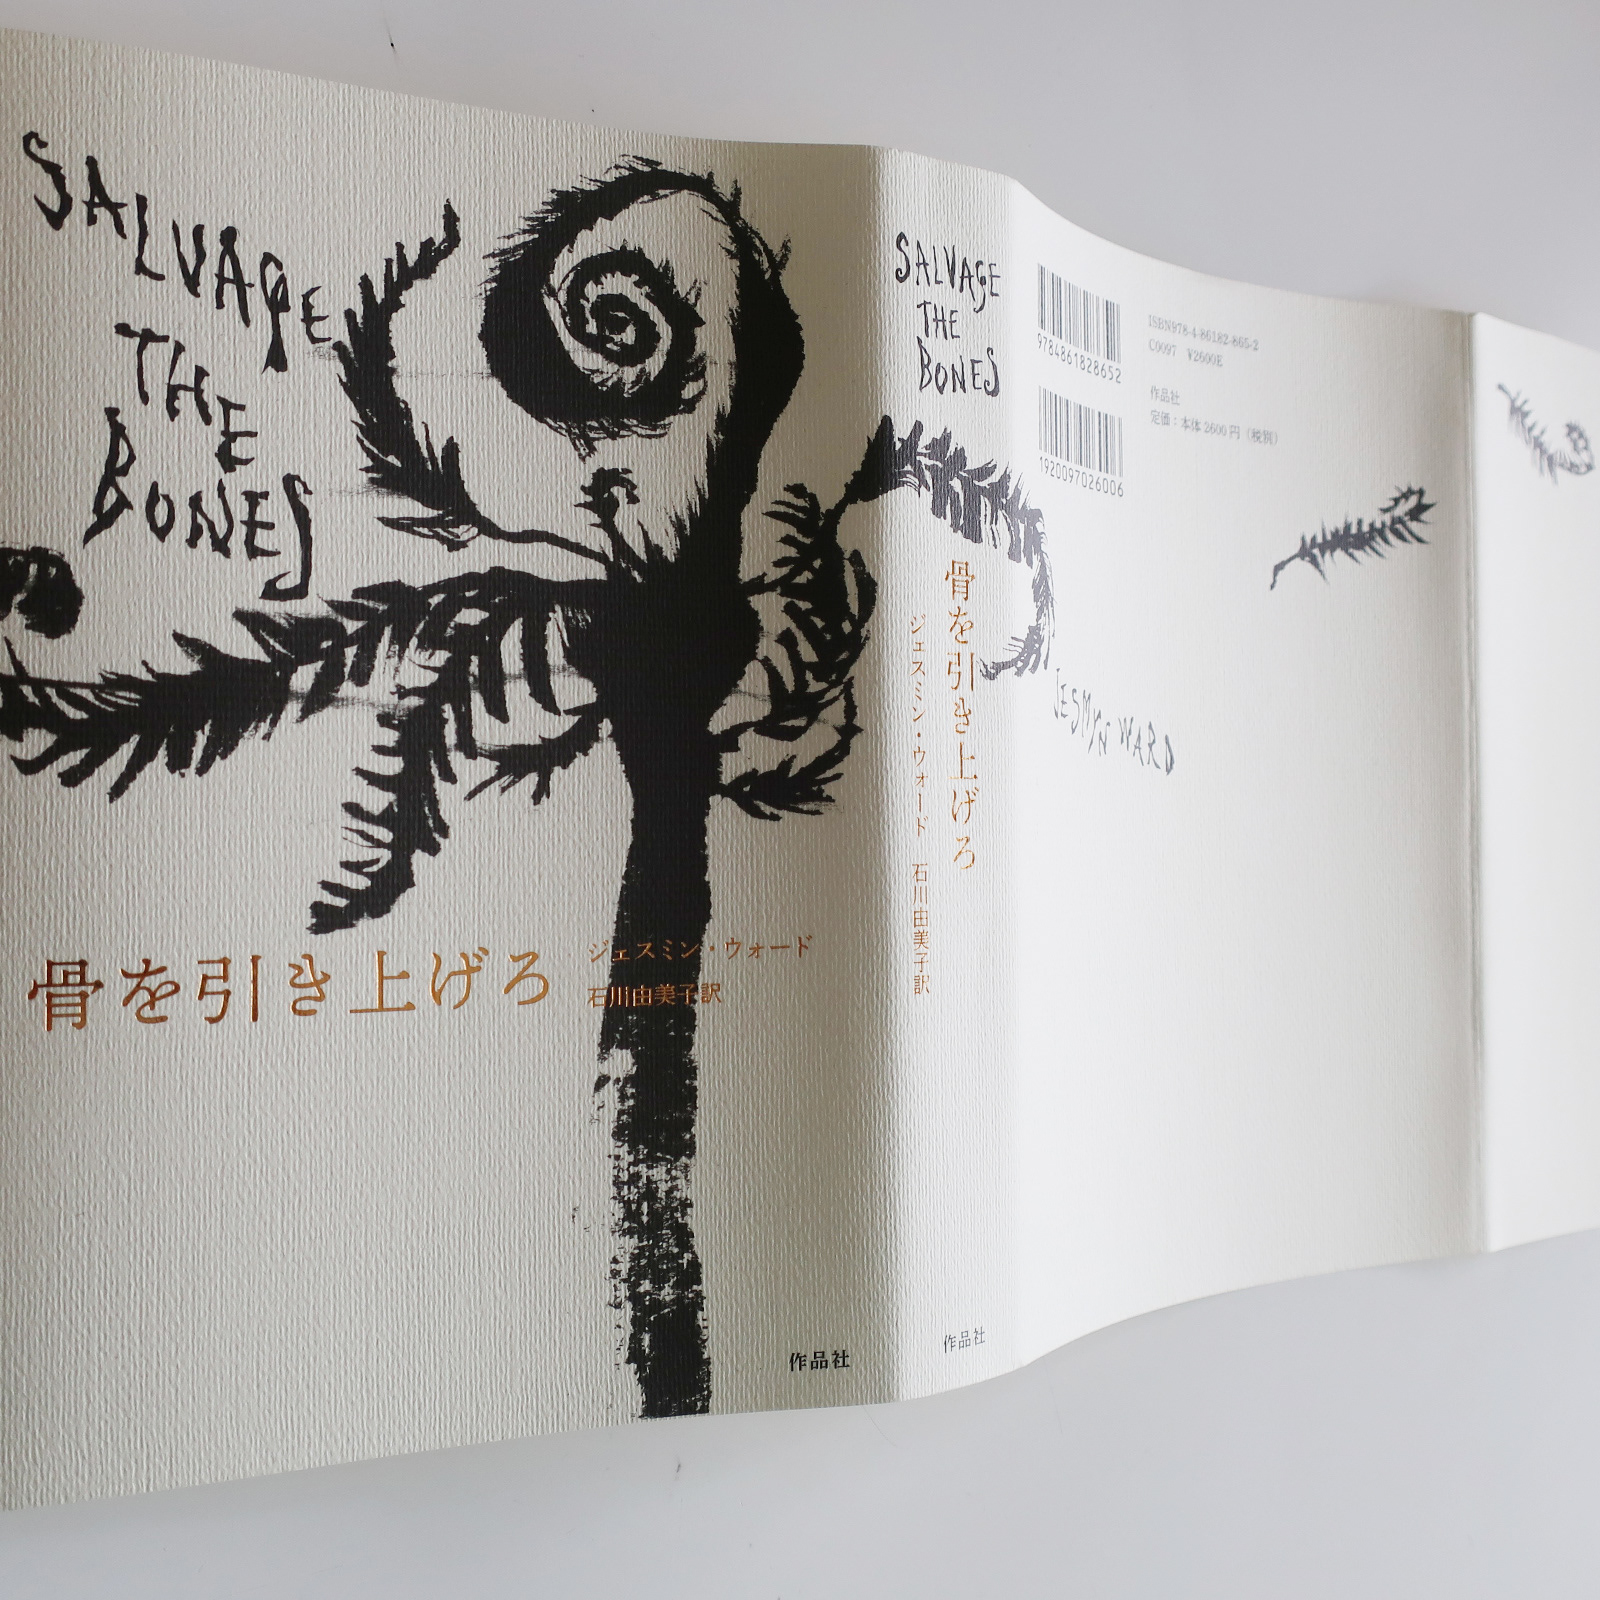 SALVAGE
THE
BONES
骨を引き上げろ
ジェスミン・ウォード
石川由美子訳
作品社
SALVAGE
THE
BONES
骨を引き上げろ
ジェスミン・ウォード 石川由美子訳
作品社
9784861828652
1920097026006
ISBN978-4-86182-865-2
C0097 ¥2600E
作品社
定価：本体2600円（税別）
JESMYN WARD